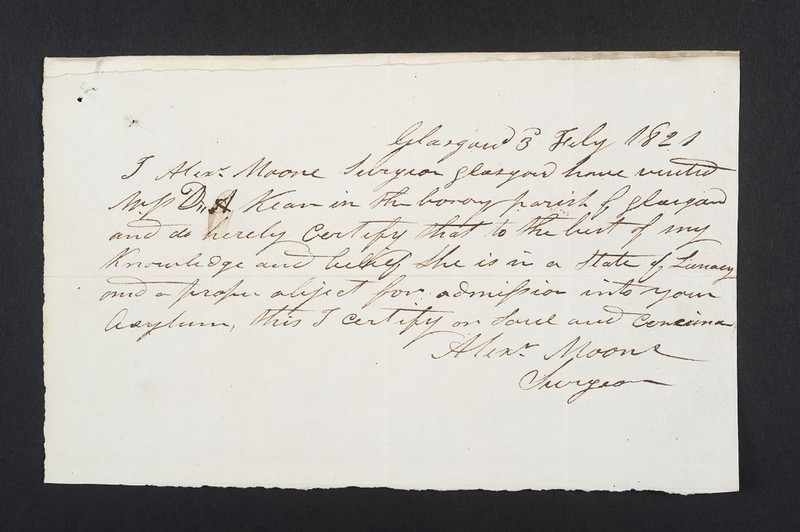 Glasgow 3 Feby 1821
I Alexr. Moone Surgeon glasgow have visited
Kean in the barony parish of glasgow
and do hereby Certify that to the best of my
Knowledge and belief She is in a State of Lunacy
and a proper object for admission into your
Asylum, this I certify on Soul and
Alexr. Moone
Surgeon